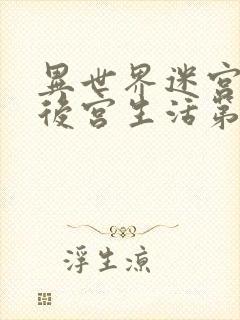 異世界迷宮
後宮生活第
浮生涼